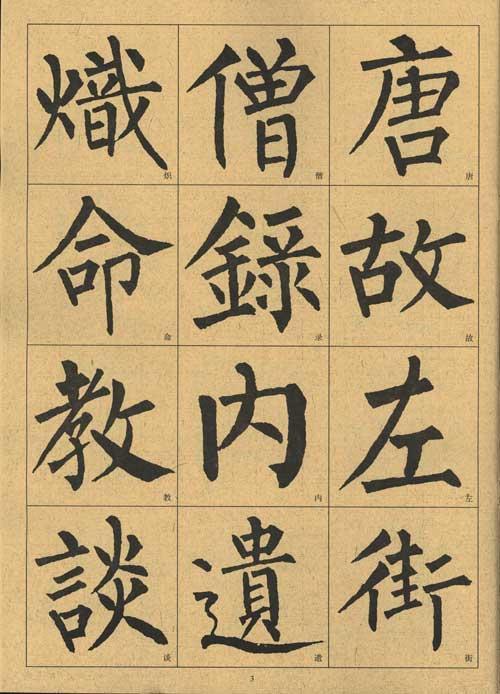 唐故左街
唐故左街
僧錄内遺
僧录内遗
熾命教談
炽命教谈
3